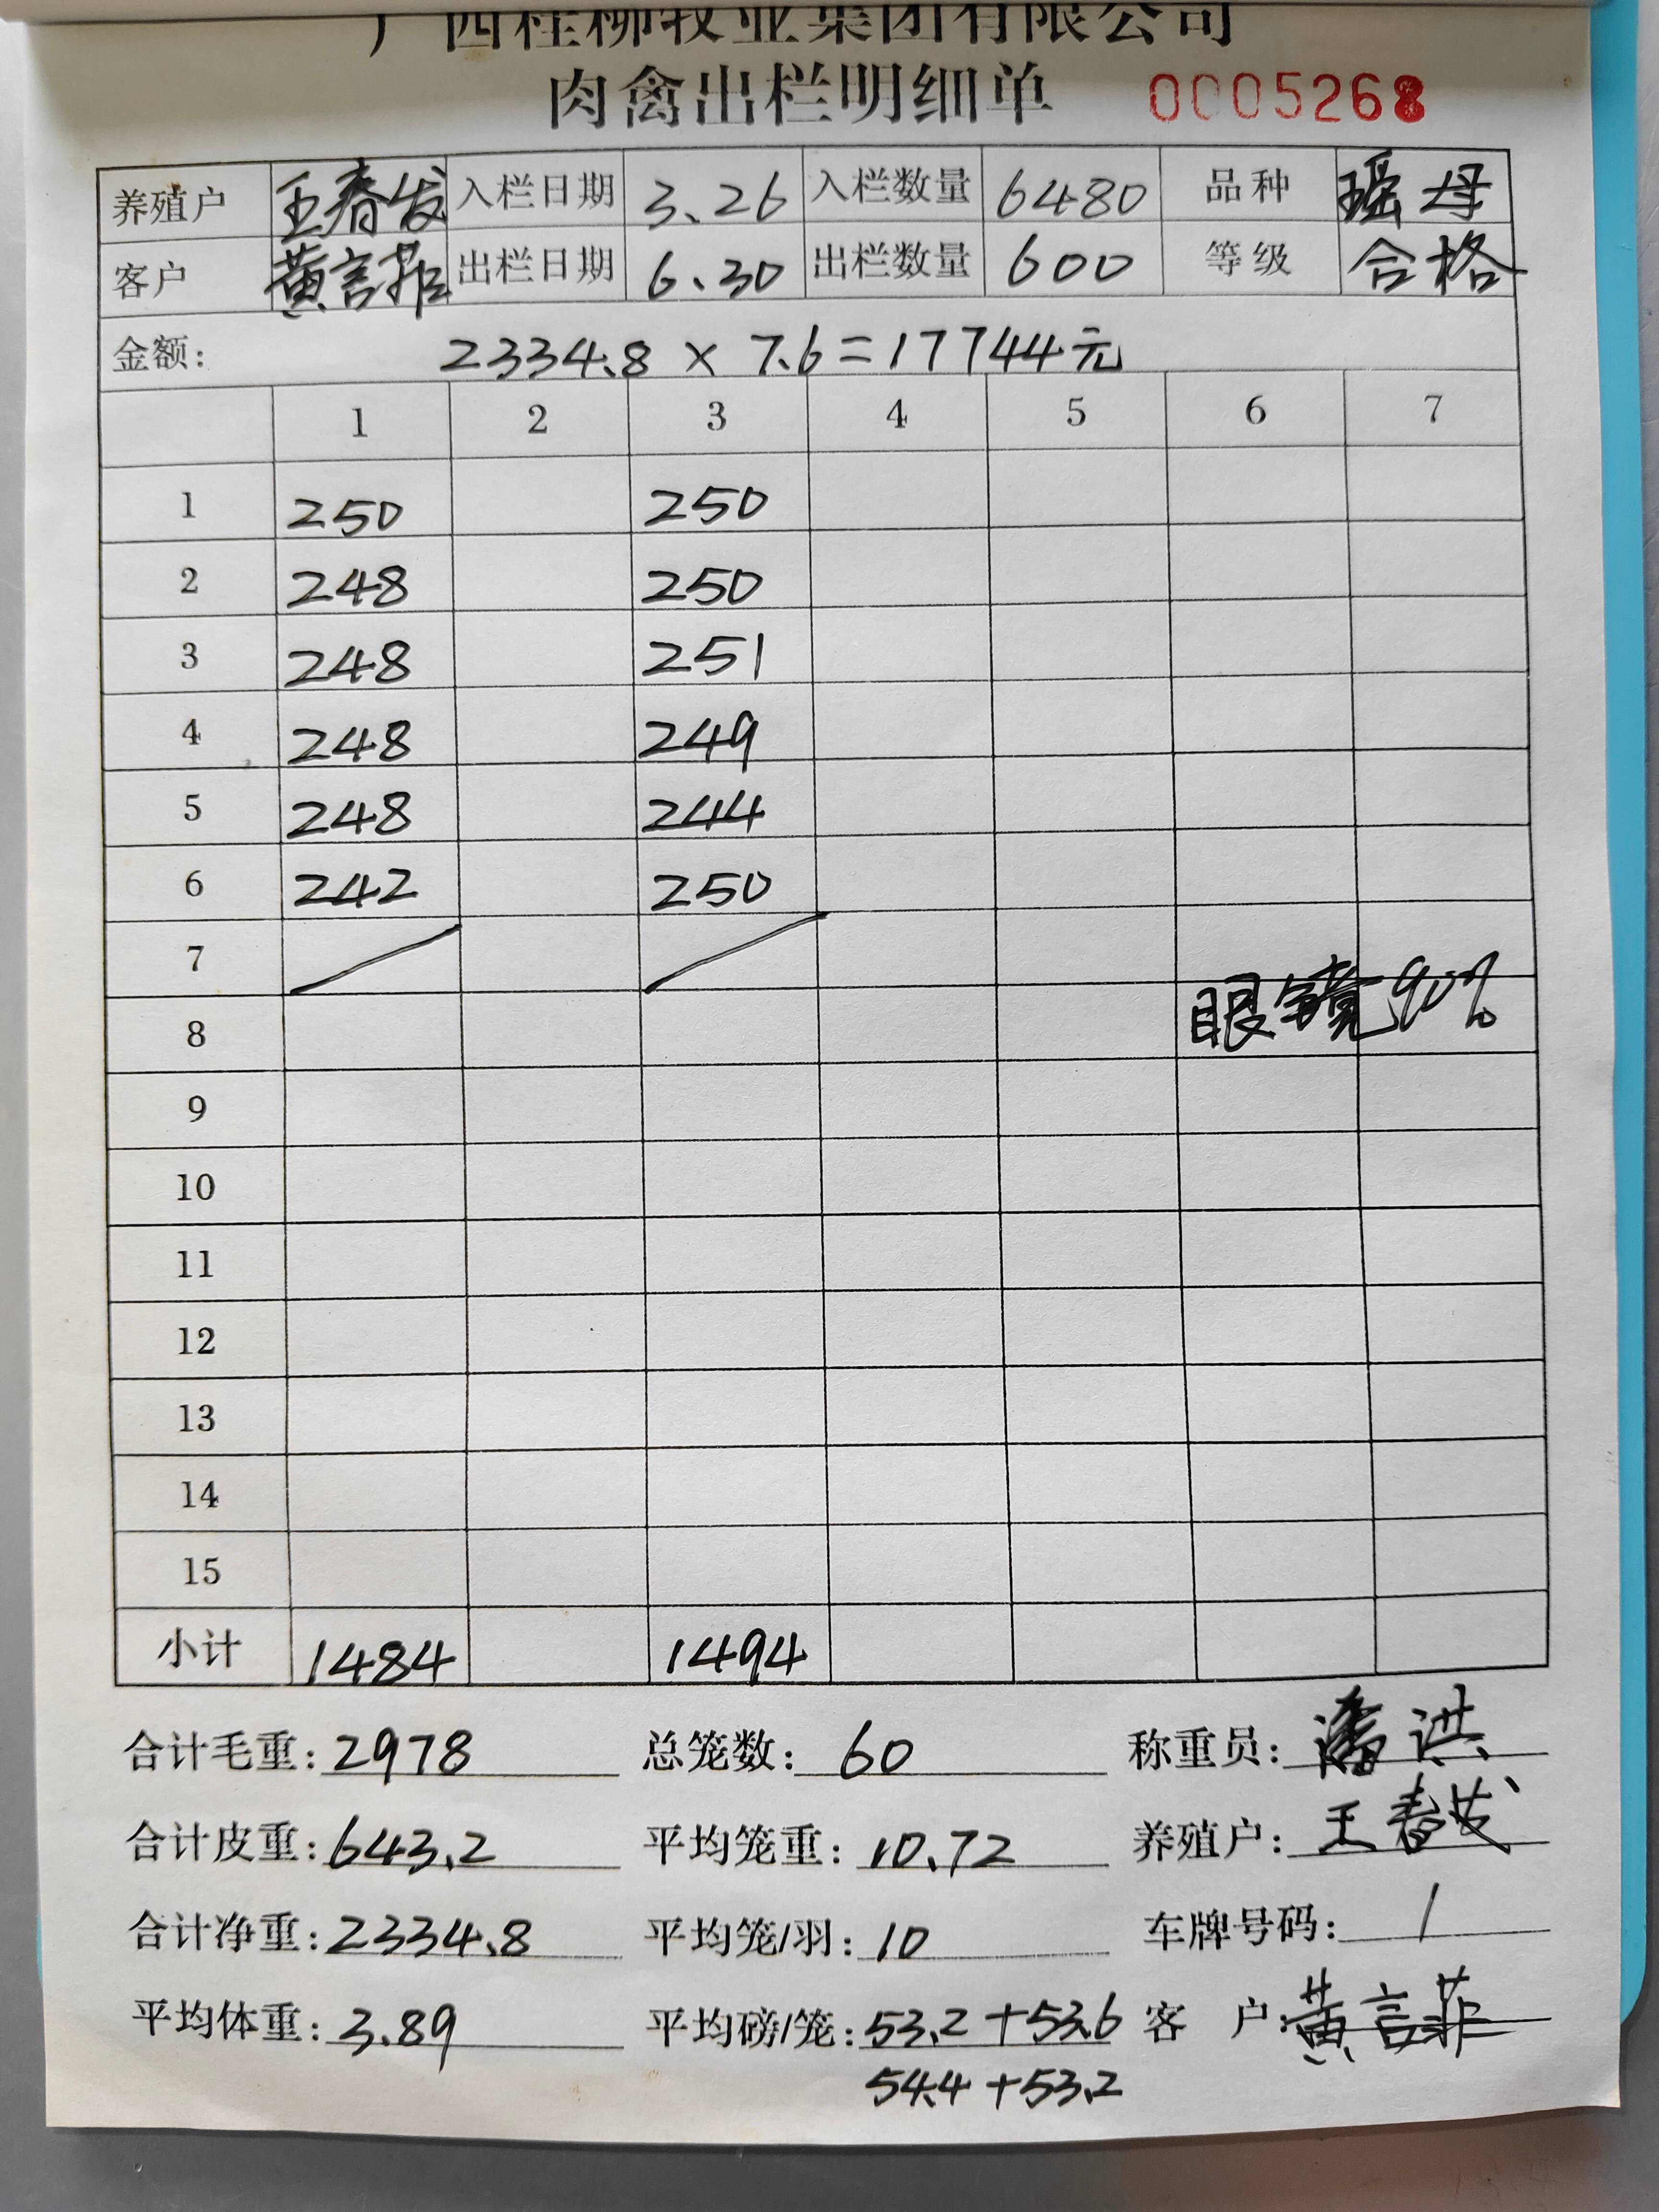 广西桂柳牧业集团有限公司
肉禽出栏明细单 0005268
养殖户 王春发 入栏日期 3.26 入栏数量 6480 品种 瑶母
客户 黄言菲 出栏日期 6.30 出栏数量 600 等级 合格
金额: 2334.8 × 7.6=17744元
1 2 3 4 5 6 7
1 250 250
2 248 250
3 248 251
4 248 249
5 248 244
6 242 250
7
眼镜90%
8
9
10
11
12
13
14
15
小计 1484 1494
合计毛重:2978 总笼数:60 称重员:潘洪
合计皮重:643.2 平均笼重:10.72 养殖户:王春发
合计净重:2334.8 平均笼/羽:10 车牌号码:/
平均体重:3.89 平均磅/笼:53.2+53.6 客户:黄言菲
54.4+53.2